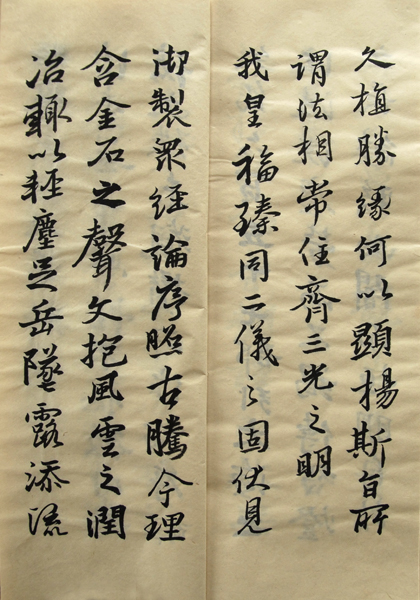 久植勝緣何以顯揚斯旨所
謂法相常住齊三光之明
我皇福臻同二儀之固伏見
御製眾經論序照古騰今理
含金石之聲文抱風雲之潤
治輒以輕塵足岳墜露添流